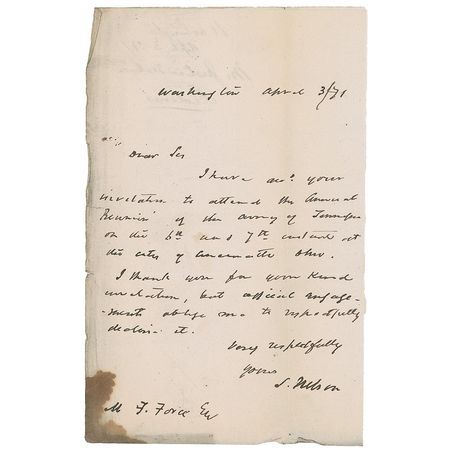 Washington April 3/71
Dear Sir
I have recd. your
invitation to attend the Annual
Reunion of the army of Tennessee
on the 6th and 7th instant at
the city of Cincinnatti Ohio.
I thank you for your kind
invitation, but official engage-
ments oblige me to respectfully
decline it.
Very respectfully
yours
S. Nelson
M F. Force Esq